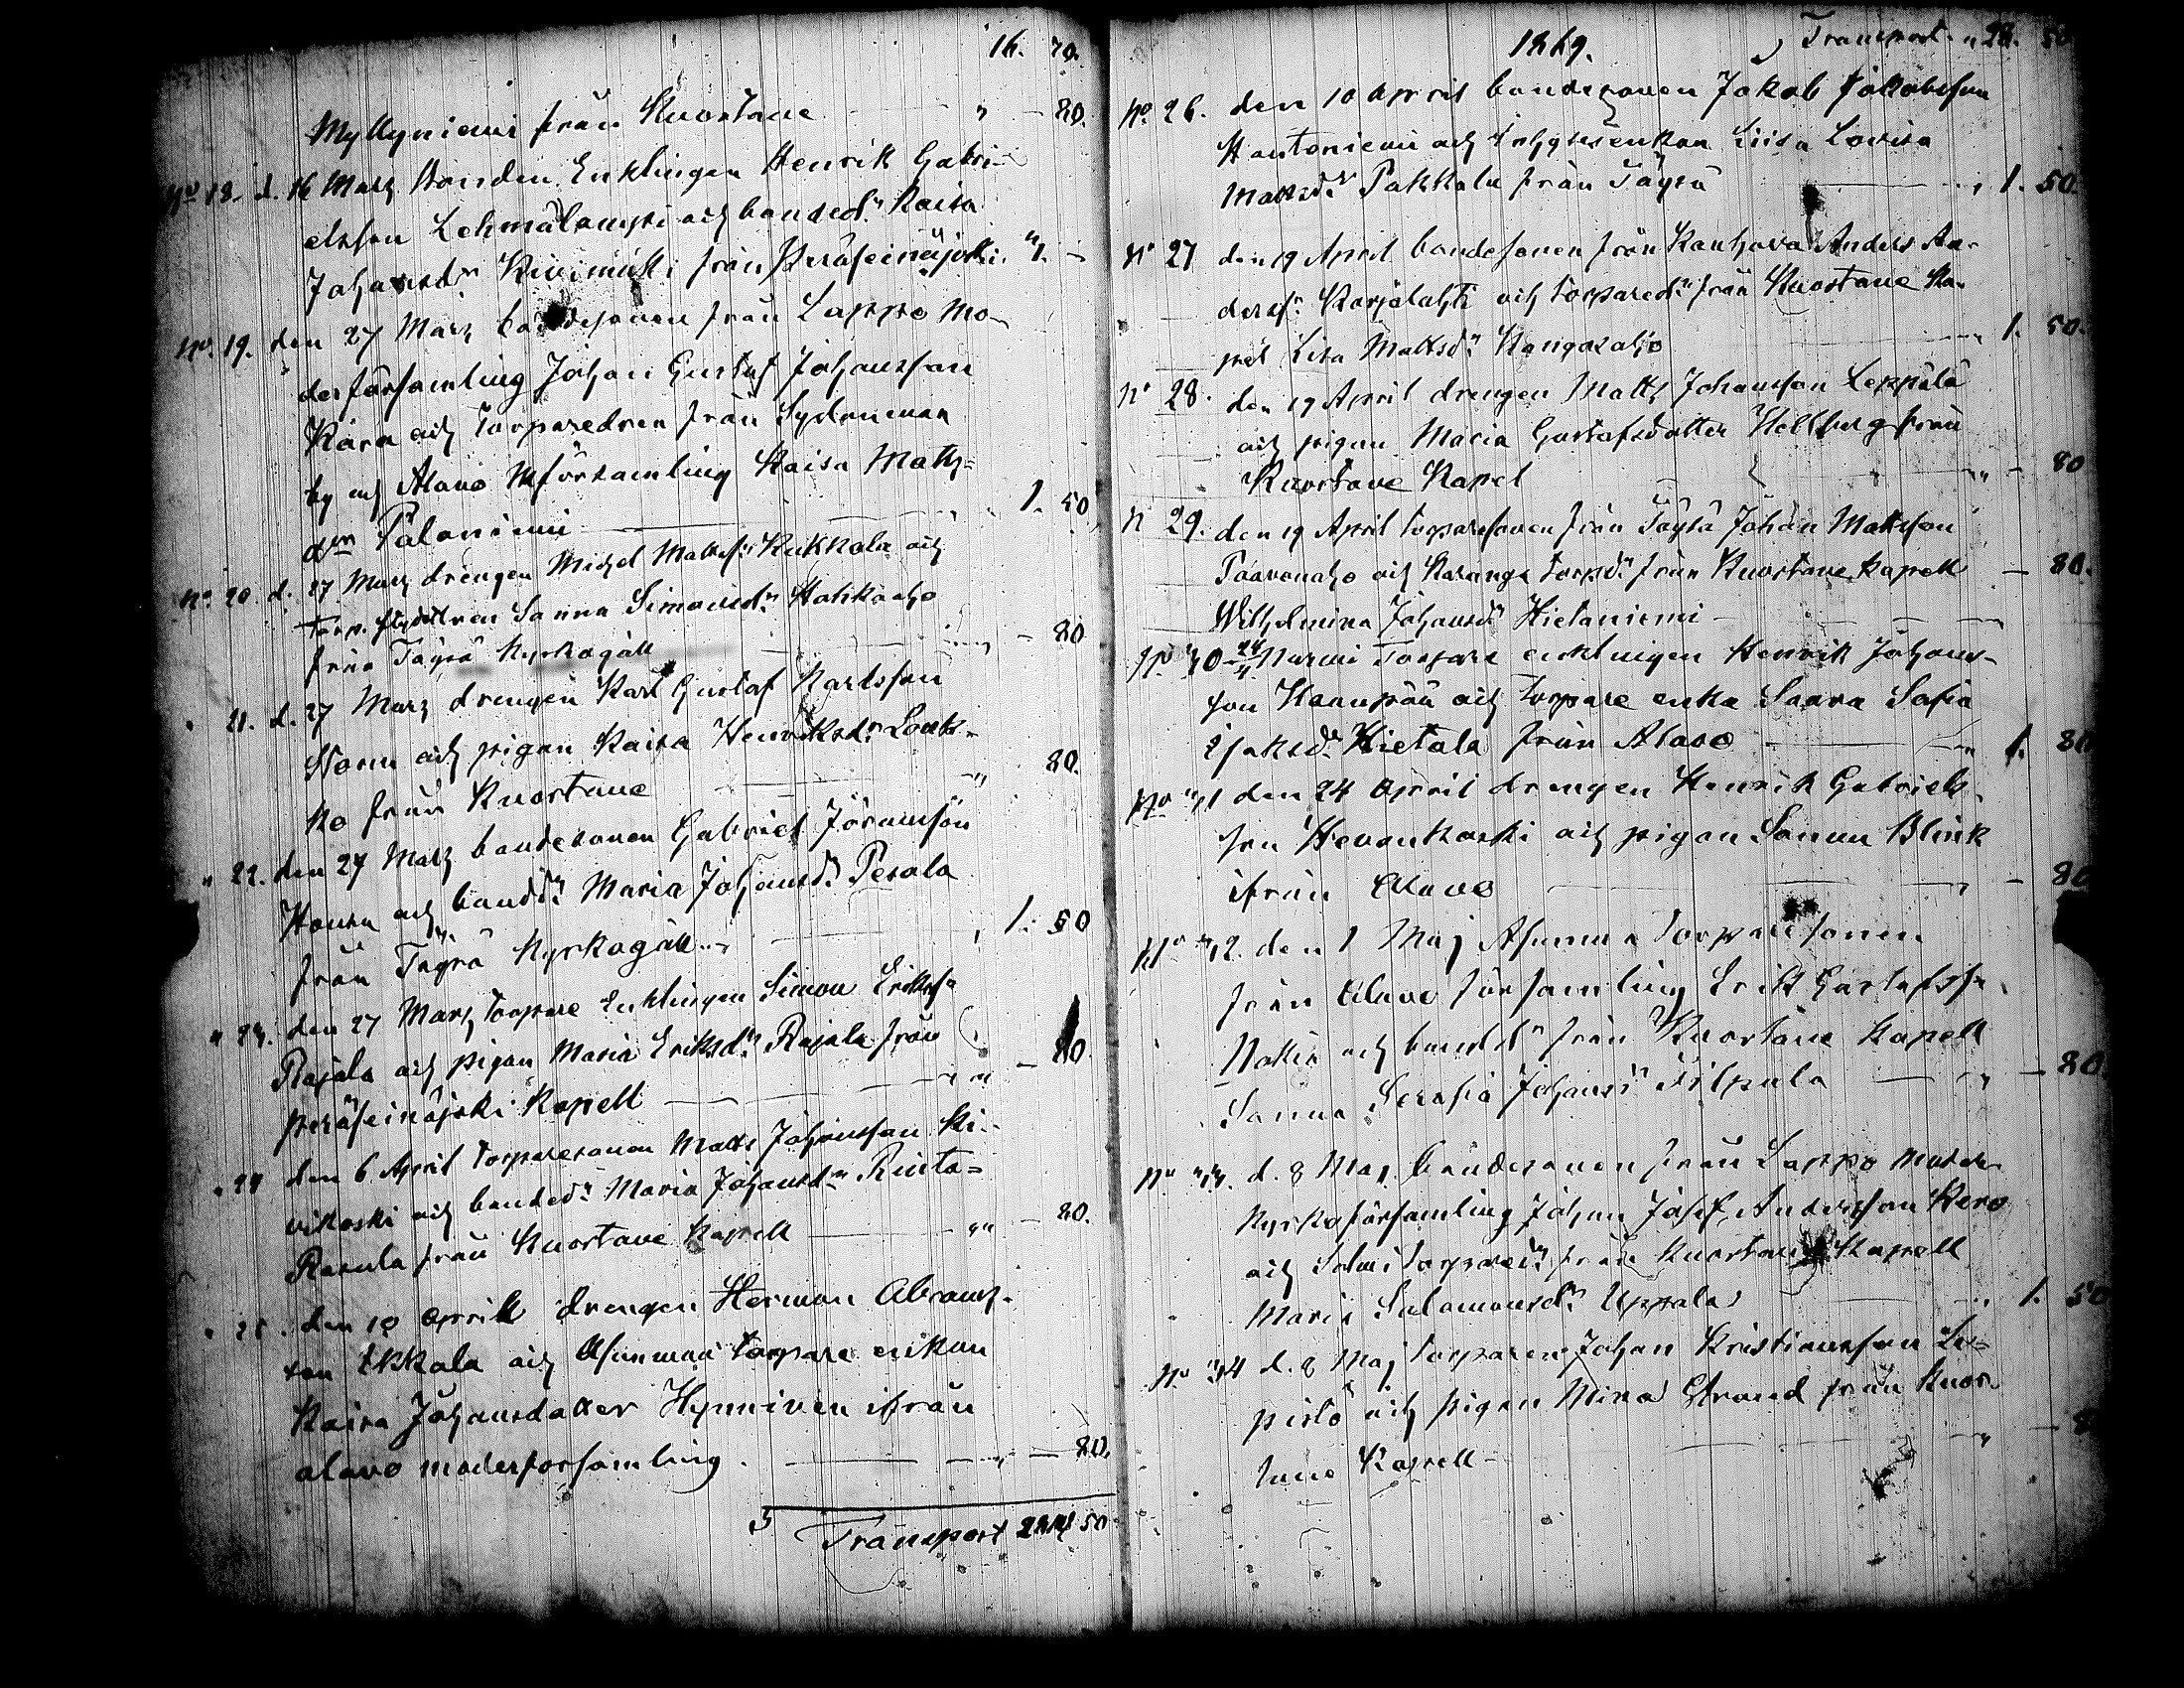 16. 70.
Myllyniemi från Kuortane " - 80.
No 18. d. 16 Marz Bonden Enklingen Henrik Gabri-
elsson Lehmälampi och bonded:r Kaisa
Johansdr Kivimäki från Peräseinäjoki. "1. -
No. 19. den 27 Marz bondesonen från Lappo Mo-
derförsamling Johan Gustaf Johansson
Kära och Torparedren från Sydänmaa
by och Alavo Mförsamling Kaisa Matts=
dr Paloniemi 1. 50
No. 20 d. 27 Marz drengen Michel Mattss: Kukkola och
från Töysä Kyrkogäll - 80
" 21. d. 27 Marz drengen Karl Gustaf Karlsson
Storm och pigan Kaisa Henriksdr Louk-
ko från Kuortane " 80.
" 22. den 27 Marz bondesonen Gabriel Jöransson
och bondd:r Maria Johansd:r Pesola
från Töysä Kyrkogäll 1. 50
" 23. den 27 Marz torpare Enklingen Simon Erikss
Rajala och pigan Maria Eriksdr Rajala från
Peräseinäjoki Kapell " " - 80
" 24 den 6 April torparesonen Matts Johansson Ki-
vikoski och bonded:r Maria Johansdr Rinta=
från Kuortane Kapell " " - 80.
" 25. den 10 April drengen Herman Abrams-
son Ekkala och torpare enkan
Kaisa Johansdatter Hynninen ifrån
alavo moderforsamling. - 80.
Transport 22 50
1869. Transport. " 22. 50
No. 26. den 10 April bondesonen Jakob Jakobsson
Hautoniemi och Enkan Liisa Lovisa
Mattsdr Pakkala från Töysä 1. 50.
No 27 den 19 April bondesonen från Kauhava Anders An-
derss:n Karjalahti och torpared:r från Kuortane Ka-
pel Lisa Mattsd:r Kangasaho 1. 50.
No 28. den 19 April drengen Matts Johansson Leppälä
och pigan Maria Gustafsdotter Hellberg från
Kuortane Kapel " " - 80
N 29. den 19 April torparesonen från Töysä Johan Mattsson
Paavonaho och torpd:r från Kuortane Kapell - 80.
Wilhelmina Johansd:r Hietaniemi
No. 30 Torpare enklingen Henrik Johans-
son Haanpää och torpare enka Saara Sofia
Isaksd:r Hietala från Alavo 1. 80
No 31 den 24 April drengen Henrik Gabriels-
son Hevonkoski och pigan Sanna Blink
ifrån Alavo - 80
No 32. den 1 Maj Torparesonen
från Alavo församling Erik Gustafss:n
och bondd:r från Kuortane Kapell
Sanna Serafia Johansd:r Filpula " - 80
No 33. d. 8 Maj bondesonen från Lappo moder
Kyrkoförsamling Johan Josef Andersson Kero
och torpared:r från Kuortane Kapell
Maria Salomonsd:r Uppala 1. 50
No 34 d. 8 Maj Torparen Johan Kristiansson Le-
pistö och pigan Mina Strand från Kuor-
tane Kapell " - 8